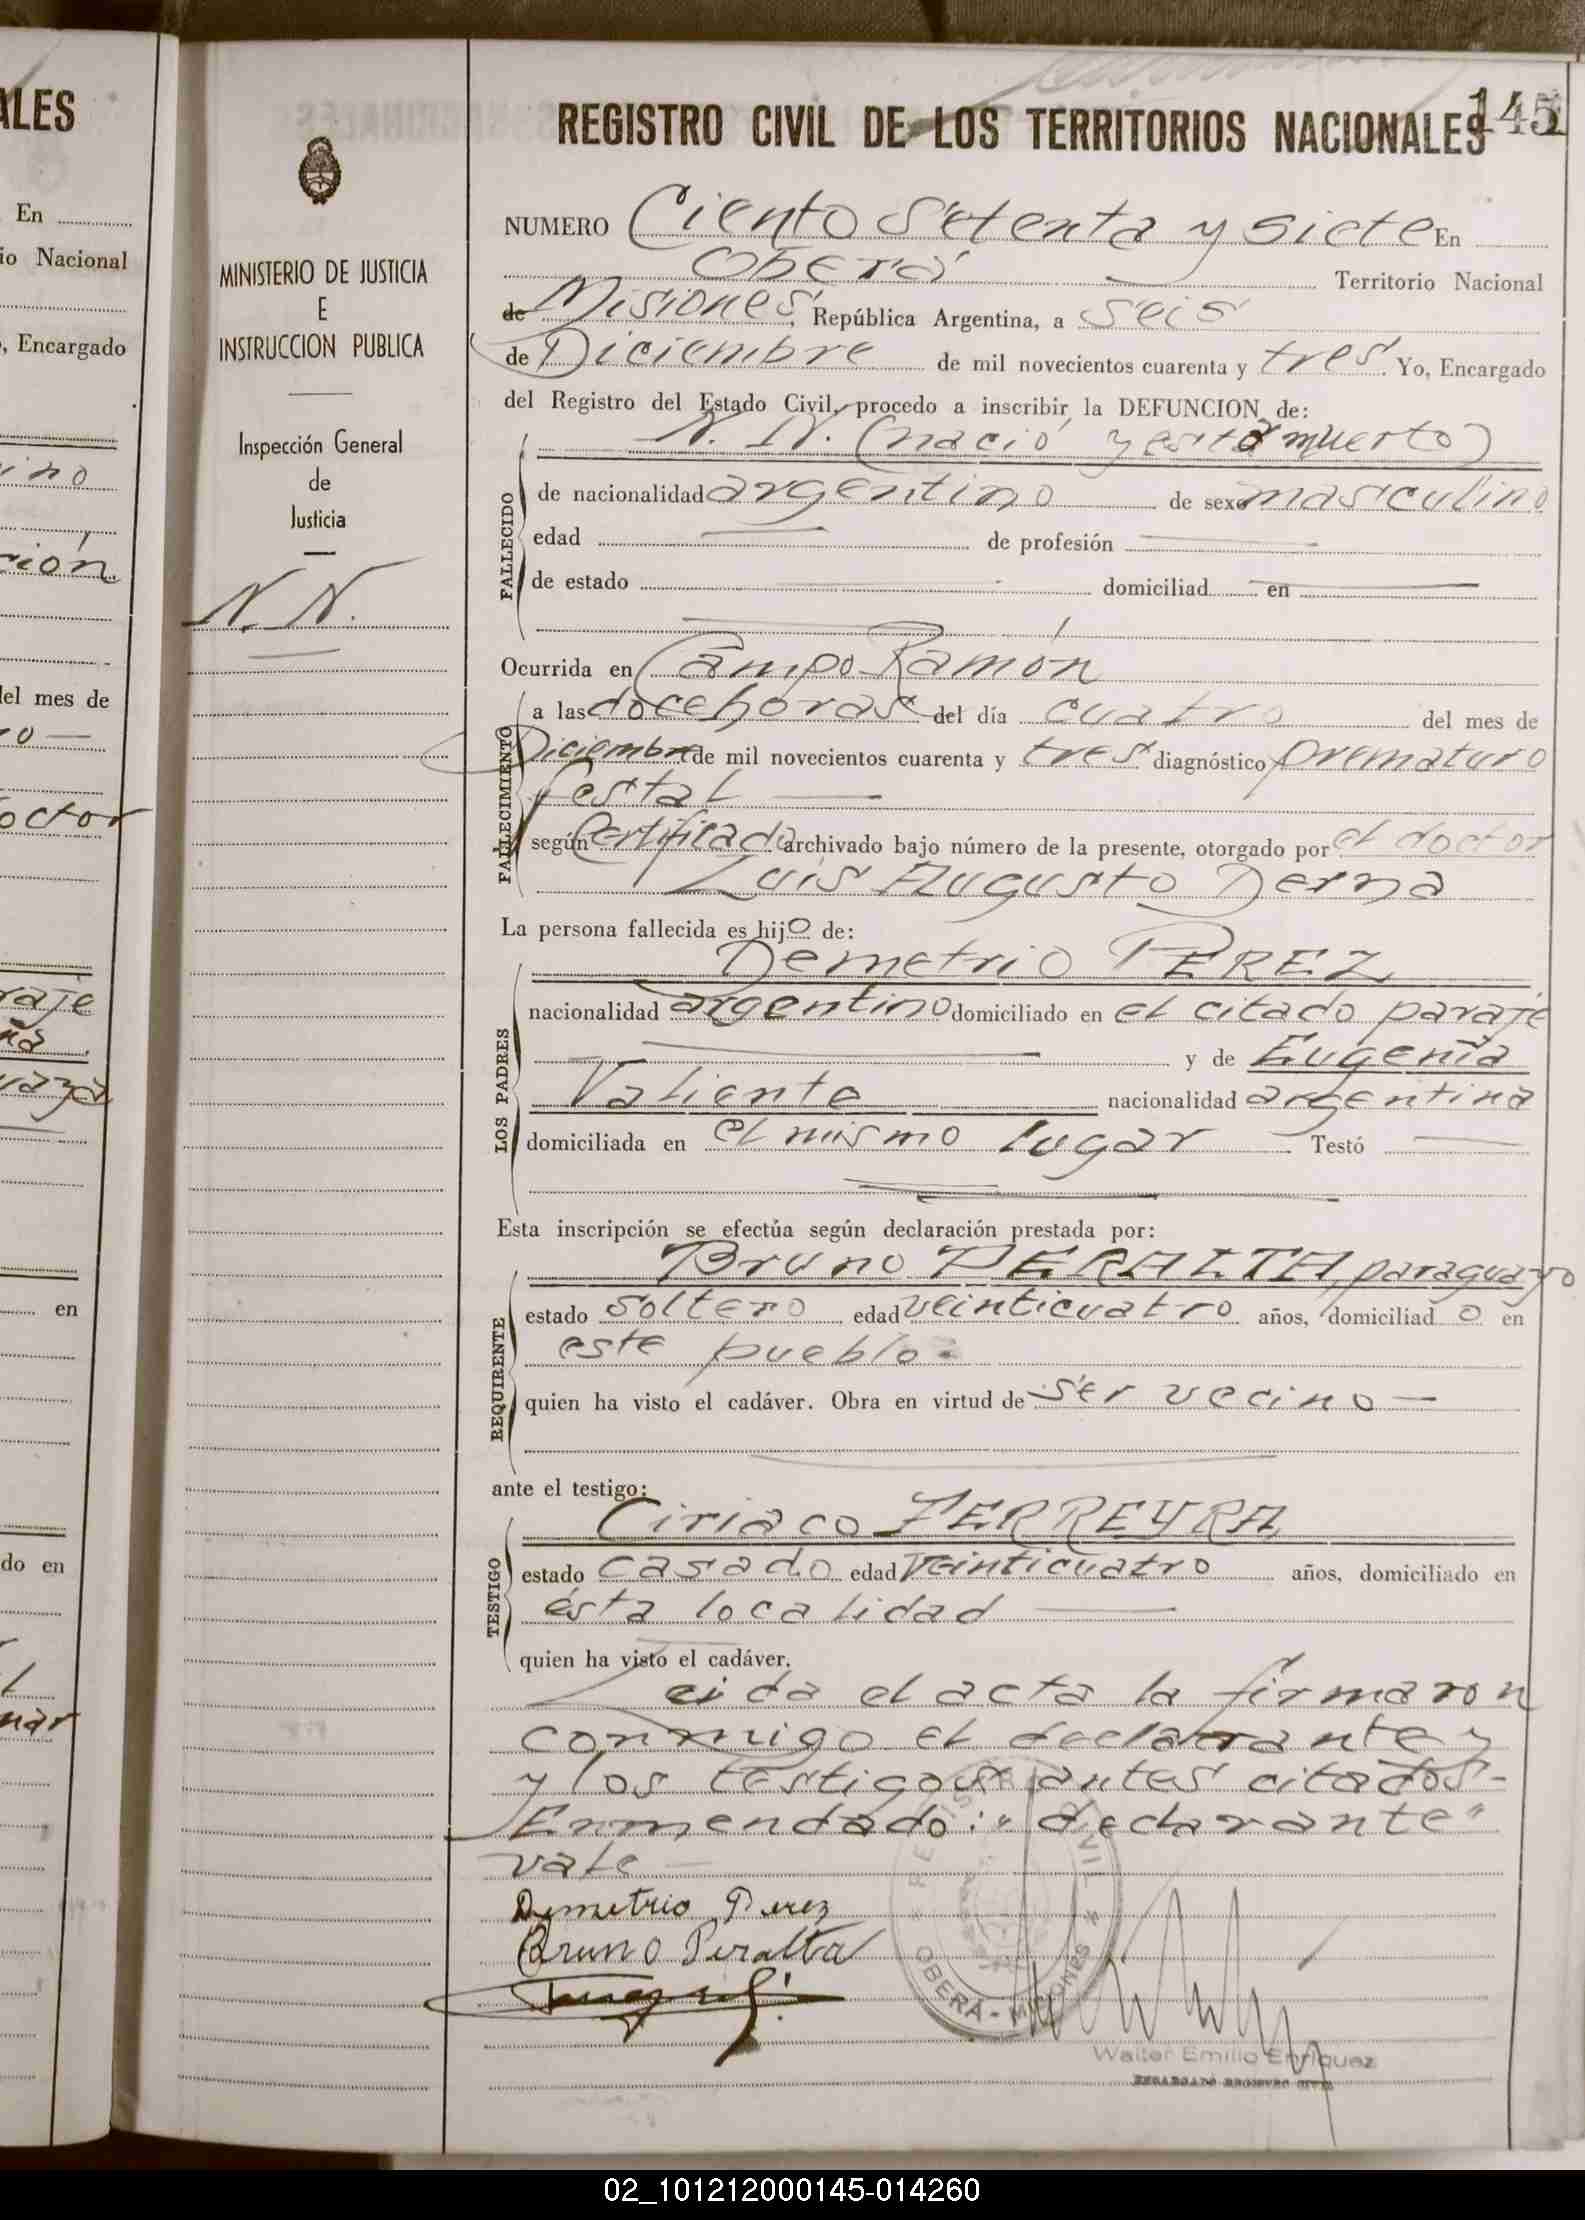 ALES
En
io Nacional
, Encargado
ino
ción
del mes de
ro
octor
raje
en
do en
nar
145
REGISTRO CIVIL DE LOS TERRITORIOS NACIONALES
MINISTERIO DE JUSTICIA
E
INSTRUCCION PUBLICA
Inspección General
de
Justicia
N. N.
NUMERO Ciento Setenta y siete En
Oberá Territorio Nacional
de Misiones, República Argentina, a seis
de Diciembre de mil novecientos cuarenta y tres. Yo, Encargado
del Registro del Estado Civil, procedo a inscribir la DEFUNCION de:
N. N. (nació y está muerto)
FALLECIDO
de nacionalidad argentino de sexo masculino
edad de profesión
de estado domiciliad en
Ocurrida en Campo Ramón
FALLECIMIENTO
a las doce horas del día cuatro del mes de
Diciembre de mil novecientos cuarenta y tres diagnóstico prematuro
festal
según Certificado archivado bajo número de la presente, otorgado por el doctor
Luis Augusto Derna
La persona fallecida es hijo de:
LOS PADRES
Demetrio PEREZ
nacionalidad argentino domiciliado en el citado paraje
y de Eugenia
Valiente nacionalidad argentina
domiciliada en el mismo lugar Testó
Esta inscripción se efectúa según declaración prestada por:
REQUIRENTE
Bruno PERALTA, paraguayo
estado soltero edad veinticuatro años, domiciliado en
este pueblo.
quien ha visto el cadáver. Obra en virtud de ser vecino
ante el testigo:
TESTIGO
Ciriaco FERREYRA
estado casado edad veinticuatro años, domiciliado en
ésta localidad
quien ha visto el cadáver.
Leida el acta la firmaron
conmigo el declarante y
y los testigos antes citados-
Enmendado: "declarante"
vale
Demetrio Perez
Bruno Peralta
REGISTRO CIVIL
OBERÁ - MISIONES
Walter Emilio Enriquez
ENCARGADO REGISTRO CIVIL
02_101212000145-014260